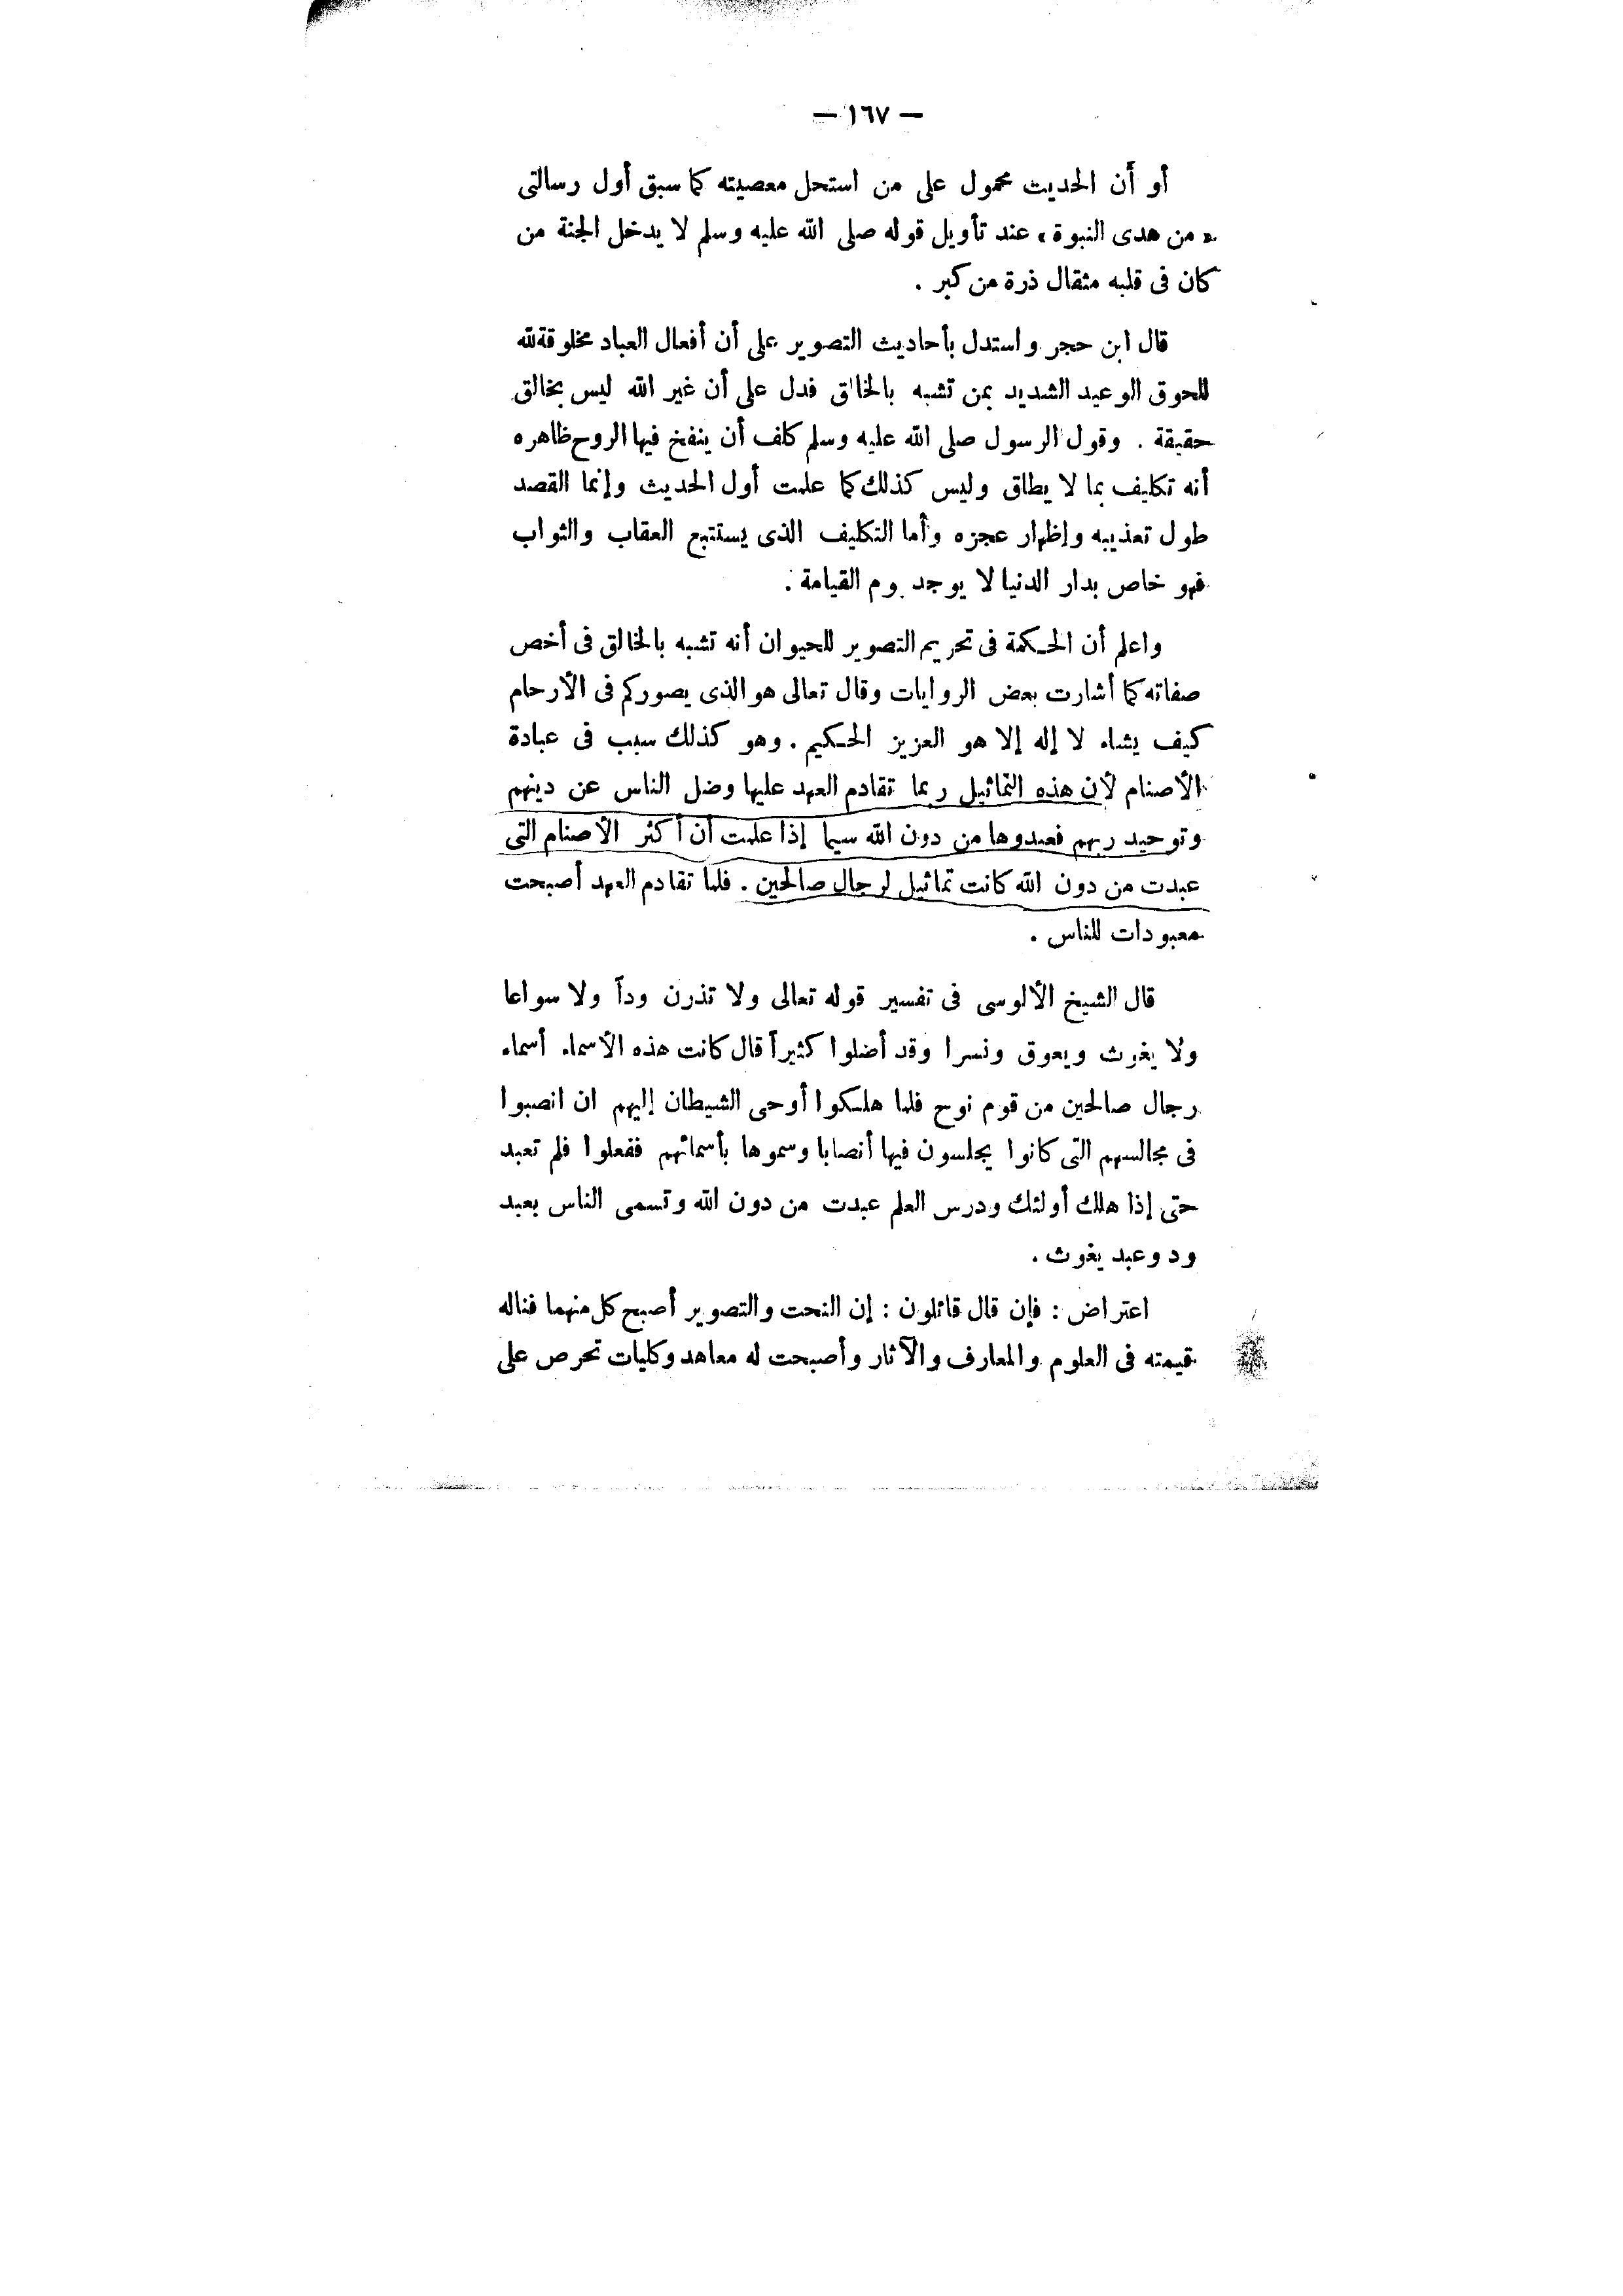 — ١٦٧ —
أو أن الحديث محمول على من استحل معصيته كما سبق أول رسالتى
« من هدى النبوة » عند تأويل قوله صلى الله عليه وسلم لا يدخل الجنة من
كان فى قلبه مثقال ذرة من كبر .
قال ابن حجر واستدل بأحاديث التصوير على أن أفعال العباد مخلوقة لله
للحوق الوعيد الشديد بمن تشبه بالخالق فدل على أن غير الله ليس بخالق
حقيقة . وقول الرسول صلى الله عليه وسلم كلف أن ينفخ فيها الروح ظاهره
أنه تكليف بما لا يطاق وليس كذلك كما علمت أول الحديث وإنما القصد
طول تعذيبه وإظهار عجزه وأما التكليف الذى يستتبع العقاب والثواب
فهو خاص بدار الدنيا لا يوجد يوم القيامة .
واعلم أن الحكمة فى تحريم التصوير للحيوان أنه تشبه بالخالق فى أخص
صفاته كما أشارت بعض الروايات وقال تعالى هو الذى يصوركم فى الأرحام
كيف يشاء لا إله إلا هو العزيز الحكيم . وهو كذلك سبب فى عبادة
الأصنام لأن هذه التماثيل ربما تقادم العهد عليها وضل الناس عن دينهم
وتوحيد ربهم فعبدوها من دون الله سيما إذا علمت أن أكثر الأصنام التى
عبدت من دون الله كانت تماثيل لرجال صالحين . فلما تقادم العهد أصبحت
معبودات للناس .
قال الشيخ الألوسى فى تفسير قوله تعالى ولا تذرن وداً ولا سواعا
ولا يغوث ويعوق ونسرا وقد أضلوا كثيراً قال كانت هذه الأسماء أسماء
رجال صالحين من قوم نوح فلما هلكوا أوحى الشيطان إليهم ان انصبوا
فى مجالسهم التى كانوا يجلسون فيها أنصابا وسموها بأسمائهم ففعلوا فلم تعبد
حتى إذا هلك أولئك ودرس العلم عبدت من دون الله وتسمى الناس بعبد
ود وعبد يغوث .
اعتراض : فإن قال قائلون : إن النحت والتصوير أصبح كل منهما فنا له
قيمته فى العلوم والمعارف والآثار وأصبحت له معاهد وكليات تحرص على